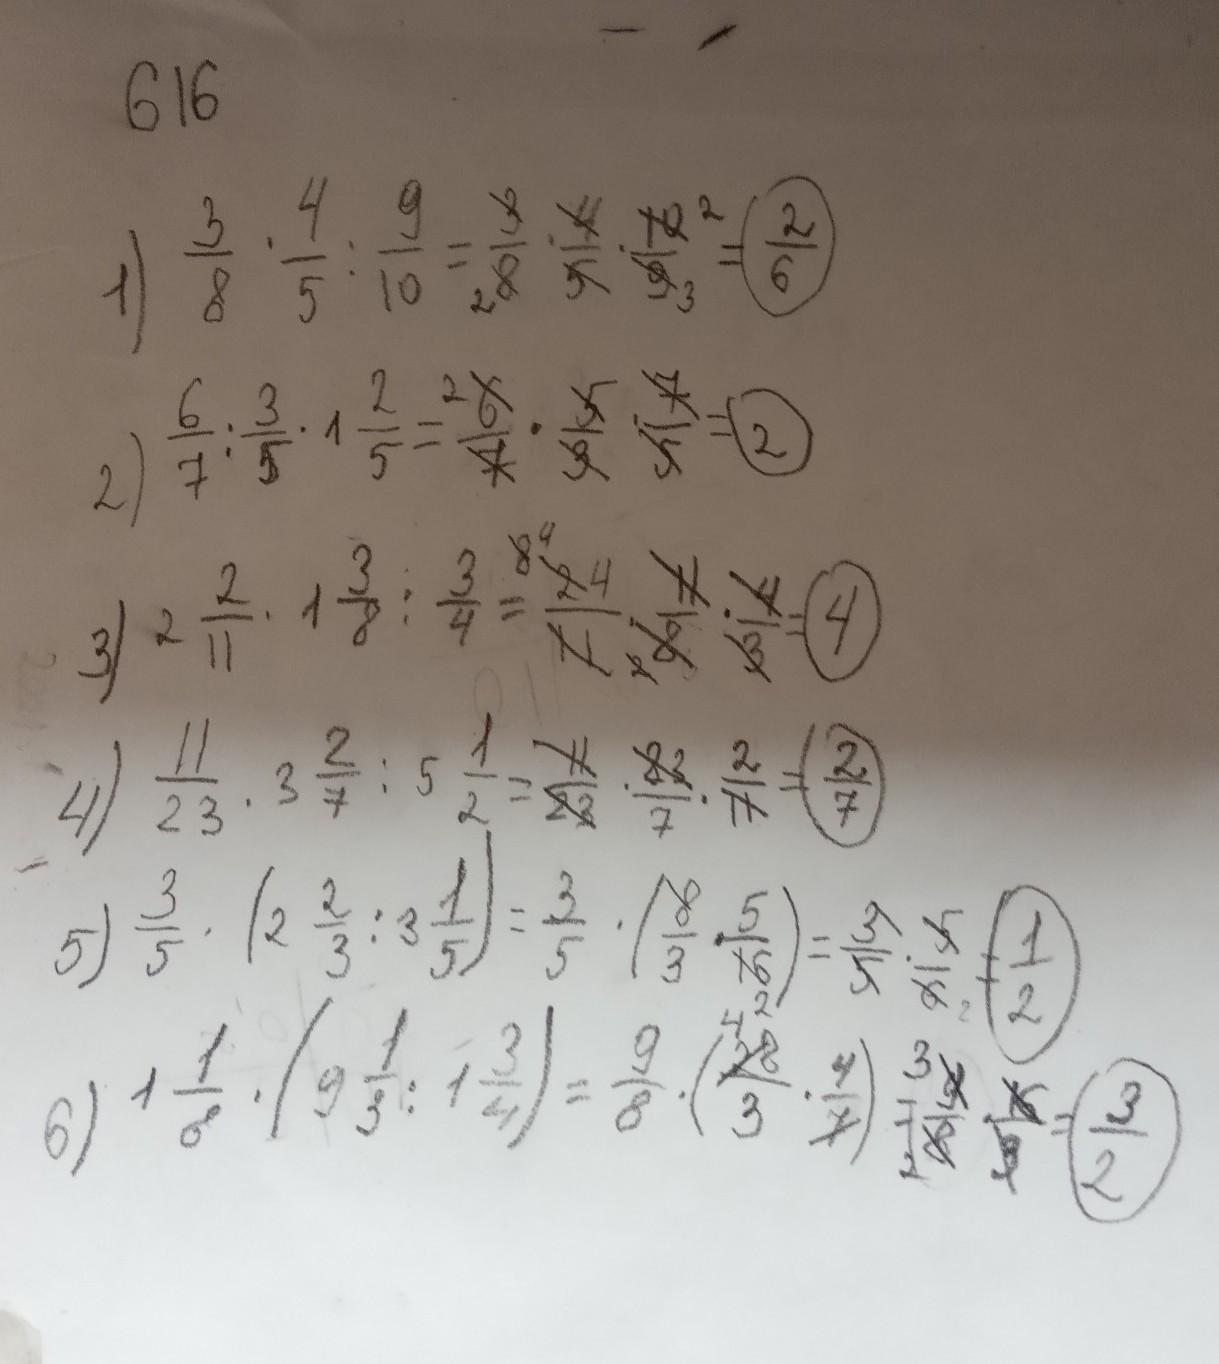 616
1) 3/8 · 4/5 : 9/10 = 3/8 2 · 4/5 · 10/9 2 3 = 2/6
2) 6/7 : 3/5 · 1 2/5 = 2 6/7 · 5/3 · 7/5 = 2
3) 2 2/11 · 1 3/8 : 3/4 = 8 4 24/11 · 11/8 2 · 4/3 = 4
4) 11/23 · 3 2/7 : 5 1/2 = 11/23 · 23/7 · 2/11 = 2/7
5) 3/5 · (2 2/3 : 3 1/5) = 3/5 · (8/3 · 5/16) = 3/5 · 5/6 2 = 1/2
6) 1 1/8 · (9 1/3 : 1 3/4) = 9/8 · (28/3 4 · 4/7) = 3 9/8 2 · 16/3 2 = 3/2